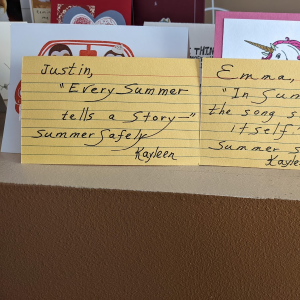 THIN
Justin,
"Every Summer
tells a Story"
Summer Safely
Kayleen
Emma,
"In Sum
the song s
itself
Summer s
Kayle